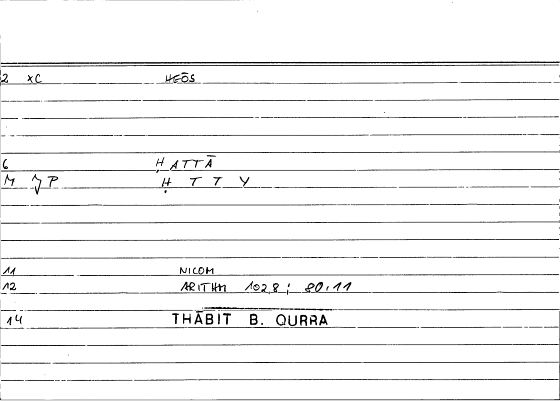 2 XC HEŌS
6 ḤATTĀ
M P Ḥ T T Y
11 NICOM
12 ARITHM 102,8 ; 80,11
14 THĀBIT B. QURRA